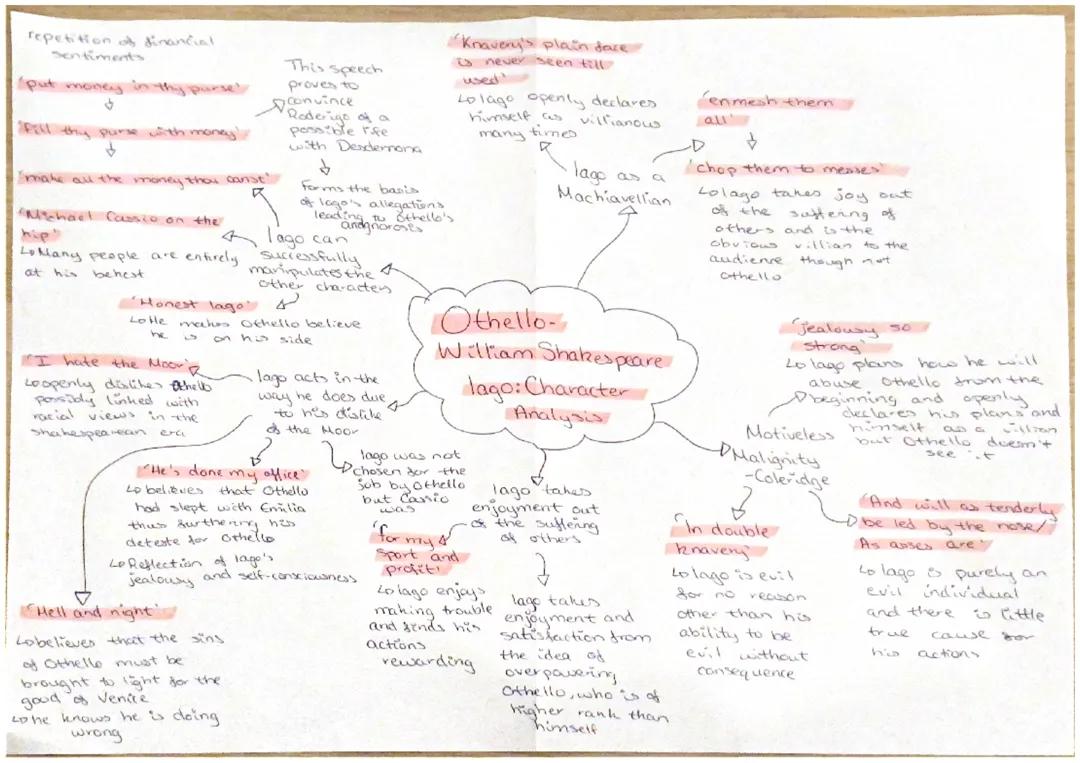 repetition of financial
sentiments
'put money in thy purse'
'fill thy purse with money'
'make all the money thou canst'
This speech
proves to
convince
Roderigo of a
possible life
with Desdemona
Forms the basis
of Iago's allegations
leading to Othello's
'Michael Cassio on the
hip'
Many people are entirely
at his behest
Iago can
successfully
manipulates the
other characters
'Honest Iago'
He makes Othello believe
he is on his side
'Knavery's plain face
is never seen till
used'
Iago openly declares
himself as villianous
many times
Iago as a
Machiavellian
'enmesh them
all'
'chop them to messes'
Iago takes joy out
of the suffering of
others and is the
obvious villian to the
audience though not
Othello
Othello-
William Shakespeare
Iago: Character
Analysis
'I hate the Moor'
openly dislikes Othello
possibly linked with
racial views in the
shakespearean era
Iago acts in the
way he does due
to his dislike
of the Moor
'He's done my office'
believes that Othello
had slept with Emilia
thus furthering his
deteste for Othello
Reflection of Iago's
jealousy and self-consciousness
Iago was not
chosen for the
job by Othello
but Cassio
was
'Hell and night'
believes that the sins
of Othello must be
brought to light for the
good of Venice
he knows he is doing
wrong
Iago takes
enjoyment out
of the suffering
of others
'for my
sport and
profit'
Iago enjoys
making trouble
and finds his
actions
rewarding
Iago takes
enjoyment and
satisfaction from
the idea of
overpowering
Othello, who is of
higher rank than
himself
Motiveless
Malignity
-Coleridge
'jealousy so
strong'
Iago plans how he will
abuse Othello from the
beginning and openly
declares his plans and
himself as a villian
but Othello doesn't
see it
'In double
knavery'
Iago is evil
for no reason
other than his
ability to be
evil without
consequence
'And will as tenderly
be led by the nose/
As asses are'
Iago is purely an
evil individual
and there is little
true cause for
his actions